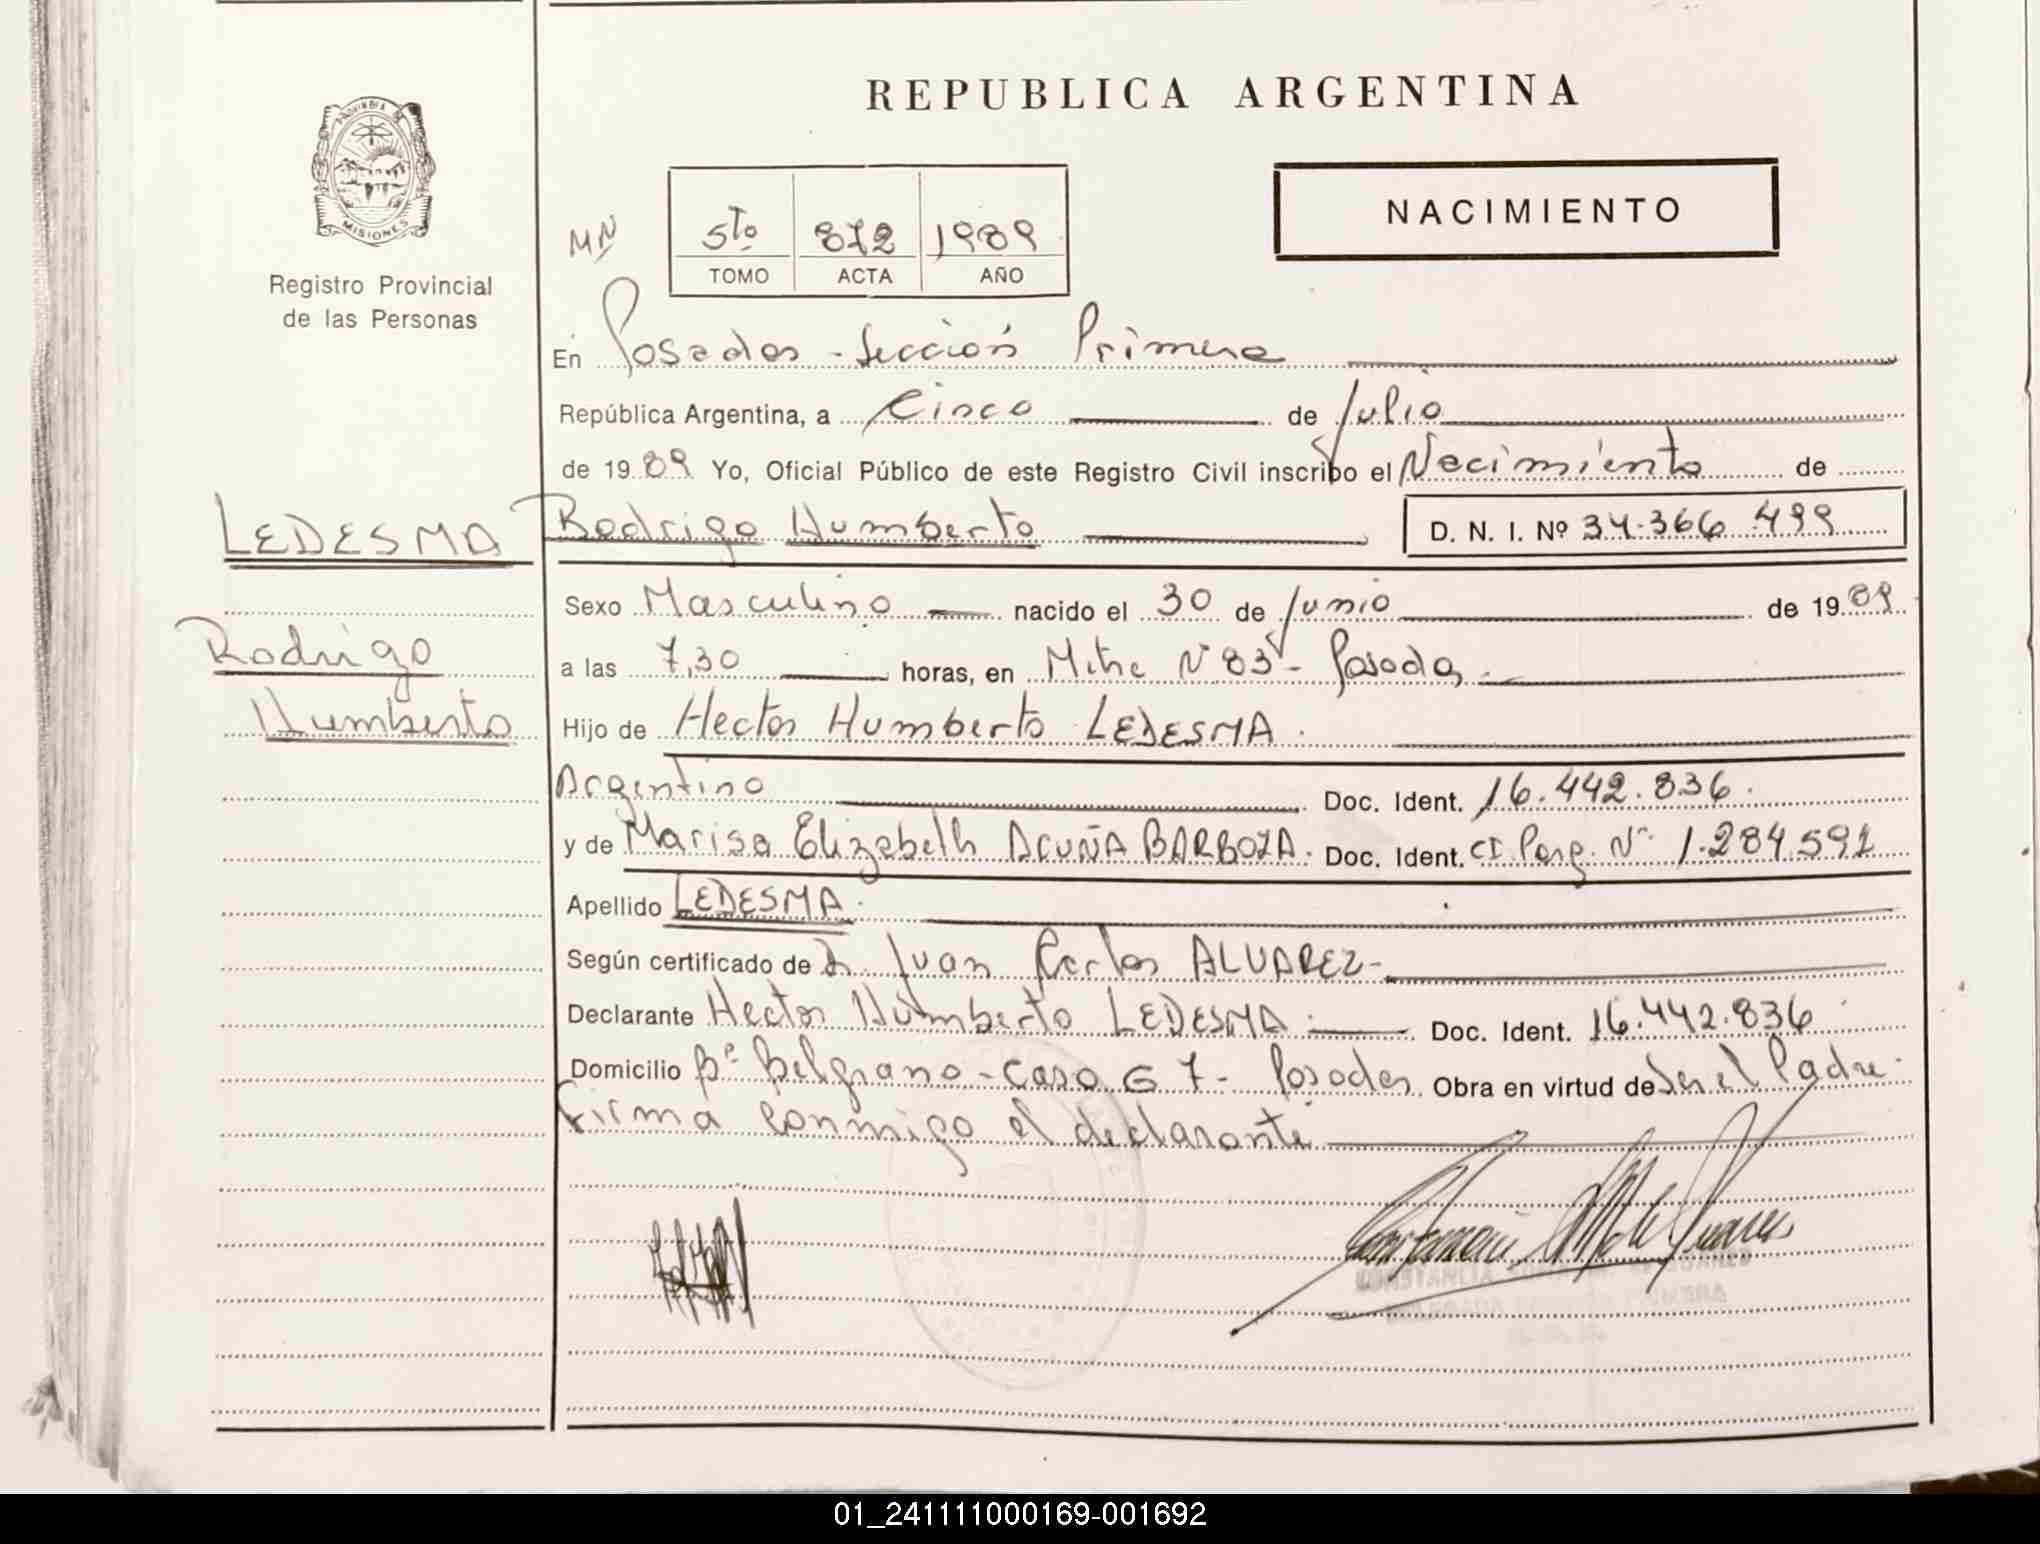 REPUBLICA ARGENTINA
PROVINCIA DE
MISIONES
Registro Provincial
de las Personas
NACIMIENTO
MN
5to 872 1989
TOMO ACTA AÑO
En Posadas - Sección Primera
República Argentina, a Cinco de Julio
de 1989 Yo, Oficial Público de este Registro Civil inscribo el Nacimiento de
LEDESMA Rodrigo Humberto D. N. I. Nº 34.366.499
Sexo Masculino nacido el 30 de Junio de 1989
Rodrigo
a las 7,30 horas, en Mitre Nº 83 - Posadas
Humberto
Hijo de Hector Humberto LEDESMA.
Argentino Doc. Ident. 16.442.836.
y de Marisa Elizabeth ACUÑA BARBOZA. Doc. Ident. CI Parg. Nº 1.284.591
Apellido LEDESMA.
Según certificado de Dr Juan Carlos ALVAREZ-
Declarante Hector Humberto LEDESMA. Doc. Ident. 16.442.836
Domicilio Bº Belgrano - Casa G 7 - Posadas Obra en virtud de Ser el Padre.
Firma conmigo el declarante
01_241111000169-001692